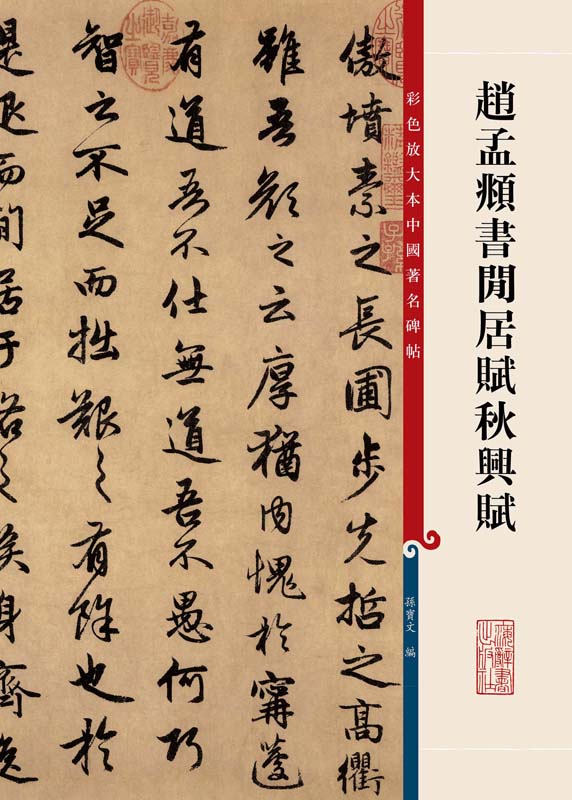 趙孟頫書閒居賦秋興賦
上海辭書出版社
彩色放大本中國著名碑帖
孫寶文 編
傲墳素之長圃步先哲之高衢
雖吾顏之云厚猶内愧於寗蘧
有道吾不仕無道吾不愚何巧
智之不足而拙艱之有餘也於
是退而閒居于洛之涘身齊逸
嘉慶御覽之寶